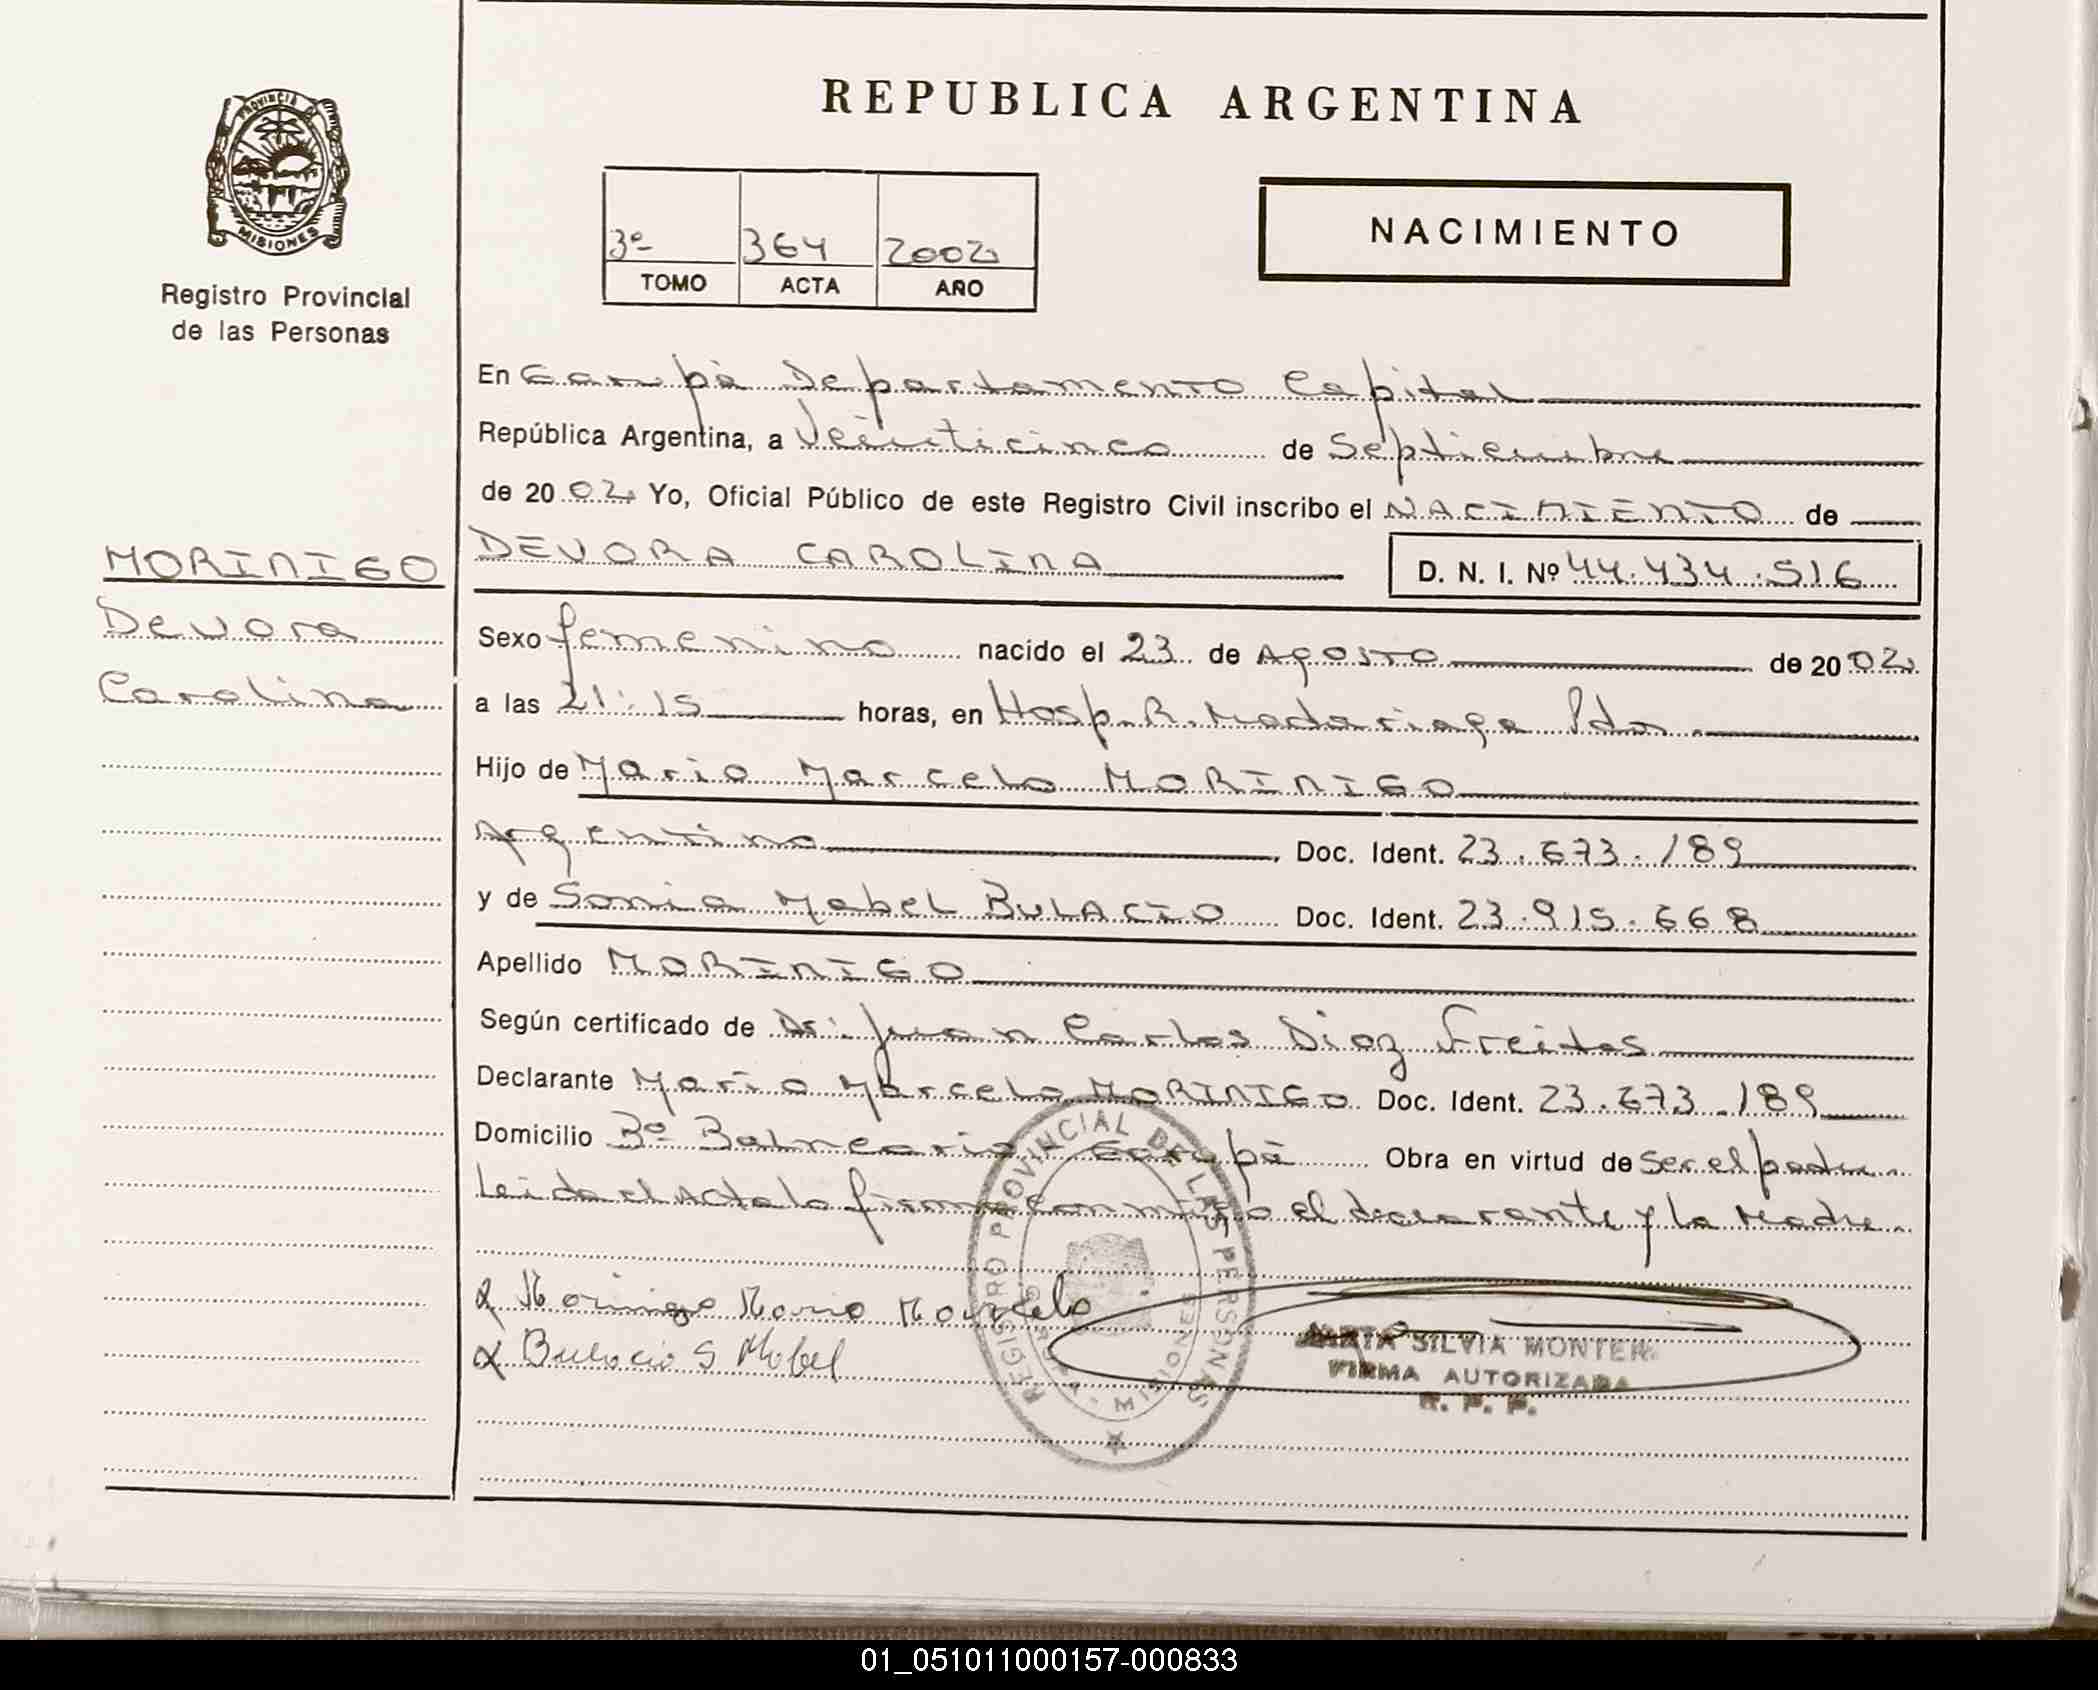 REPUBLICA ARGENTINA
PROVINCIA DE
MISIONES
Registro Provincial
de las Personas
3º 364 2002
TOMO ACTA AÑO
NACIMIENTO
En Garupà Departamento Capital
República Argentina, a Veinticinco de Septiembre
de 20 02 Yo, Oficial Público de este Registro Civil inscribo el NACIMIENTO de
MORINIGO
Devora
Carolina
DEVORA CAROLINA D. N. I. Nº 44.434.516
Sexo femenino nacido el 23 de Agosto de 20 02
a las 21:15 horas, en Hosp. R. Madariaga Pdas.
Hijo de Mario Marcelo MORINIGO
Argentino, Doc. Ident. 23.673.189
y de Sonia Mabel BULACIO Doc. Ident. 23.915.668
Apellido MORINIGO
Según certificado de Dr. Juan Carlos Diaz Freitas
Declarante Mario Marcelo MORINIGO Doc. Ident. 23.673.189
Domicilio Bº Balneario - Garupà Obra en virtud de Ser el padre
Leida el Acta la firma conmigo el declarante y la Madre
Morinigo Mario Marcelo
Bulacio S Mabel
REGISTRO PROVINCIAL DE LAS PERSONAS
MISIONES
SILVIA MONTER
FIRMA AUTORIZADA
R. P. P.
01_051011000157-000833